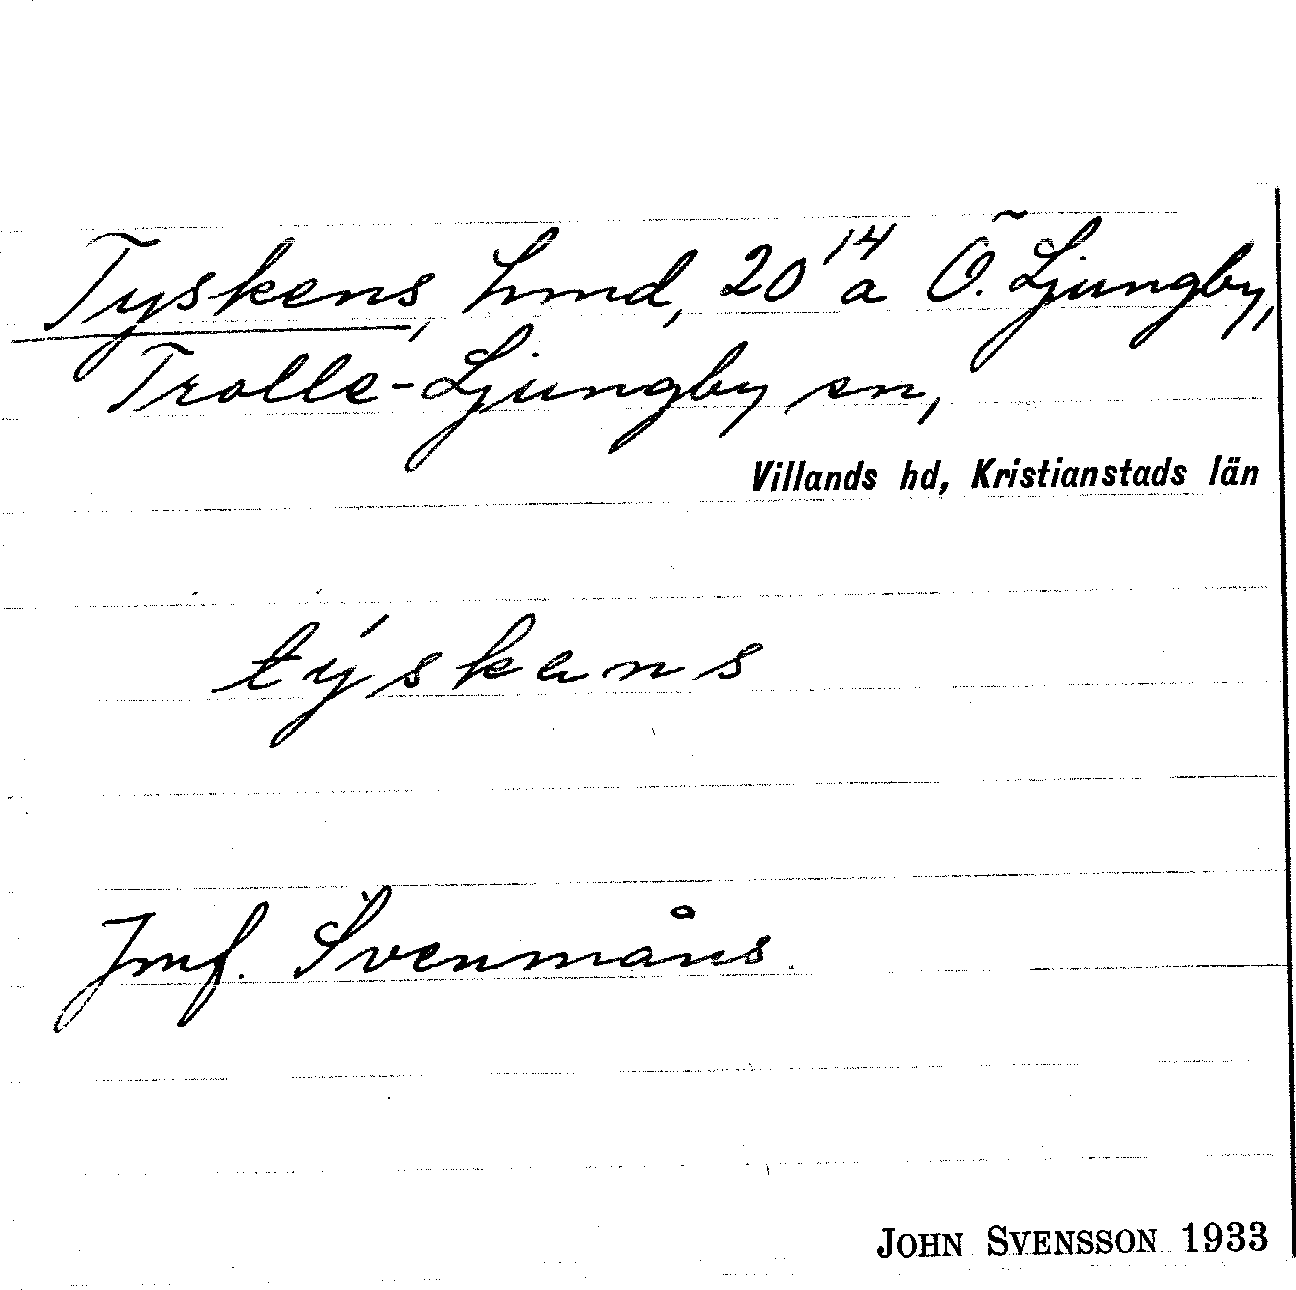 Tyskens, hmd, 20¹⁴ a Ö. Ljungby,
Trolle-Ljungby sn,
Villands hd, Kristianstads län
týskens
Jmf. Svenmåns.
JOHN SVENSSON 1933